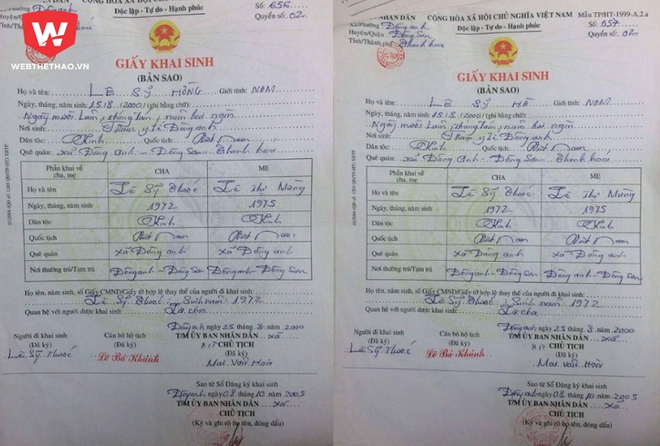 WEBTHETHAO.VN
NHÂN DÂN
CỘNG HÒA XÃ HỘI CHỦ NGHĨA VIỆT NAM
Độc lập - Tự do - Hạnh phúc
Số: 656
Quyển số: 02
GIẤY KHAI SINH
(BẢN SAO)
Họ và tên LÊ SỸ HỒNG Giới tính: NAM
Ngày, tháng, năm sinh: 15.8.2000 (ghi bằng chữ):
Ngày mười lăm, tháng tám, năm hai ngàn
Nơi sinh: Trạm y tế Đông Anh
Dân tộc: Kinh Quốc tịch: Việt Nam
Quê quán: xã Đông Anh - Đông Sơn - Thanh Hóa
Phần khai về cha, mẹ CHA MẸ
Họ và tên Lê Sỹ Thược Lê Thị Mừng
Ngày, tháng, năm sinh 1972 1975
Dân tộc Kinh Kinh
Quốc tịch Việt Nam Việt Nam
Quê quán xã Đông Anh xã Đông Anh
Nơi thường trú/Tạm trú Đông Anh - Đông Sơn Đông Anh - Đông Sơn
Họ tên, năm sinh, số Giấy CMND/Giấy tờ hợp lệ thay thế của người đi khai sinh:
Lê Sỹ Thược, Sinh năm 1972
Quan hệ với người được khai sinh: Là cha
Đông Anh, ngày 25 tháng 8 năm 2000
Người đi khai sinh
(Đã ký)
Lê Sỹ Thược
Cán bộ hộ tịch
(Đã ký)
Lê Bá Khánh
T/M ỦY BAN NHÂN DÂN xã
CHỦ TỊCH
(Đã ký)
Mai Văn Hoà
Sao từ Sổ Đăng ký khai sinh
T/M ỦY BAN NHÂN DÂN xã
CHỦ TỊCH
(Ký và ghi rõ họ tên, đóng dấu)
NHÂN DÂN
CỘNG HÒA XÃ HỘI CHỦ NGHĨA VIỆT NAM
Mẫu TPHT-1999-A.2.a
Xã/Phường Đông Anh
Huyện/Quận Đông Sơn
Tỉnh/Thành phố Thanh Hóa
Độc lập - Tự do - Hạnh phúc
Số: 657
Quyển số: 02
GIẤY KHAI SINH
(BẢN SAO)
Họ và tên LÊ SỸ HÀ Giới tính: NAM
Ngày, tháng, năm sinh: 15.8.2000 (ghi bằng chữ):
Ngày mười lăm, tháng tám, năm hai ngàn
Nơi sinh: Trạm y tế Đông Anh
Dân tộc: Kinh Quốc tịch: Việt Nam
Quê quán: xã Đông Anh - Đông Sơn - Thanh Hóa
Phần khai về cha, mẹ CHA MẸ
Họ và tên Lê Sỹ Thược Lê Thị Mừng
Ngày, tháng, năm sinh 1972 1975
Dân tộc Kinh Kinh
Quốc tịch Việt Nam Việt Nam
Quê quán xã Đông Anh xã Đông Anh
Nơi thường trú/Tạm trú Đông Anh - Đông Sơn Đông Anh - Đông Sơn
Họ tên, năm sinh, số Giấy CMND/Giấy tờ hợp lệ thay thế của người đi khai sinh:
Lê Sỹ Thược, Sinh năm 1972
Quan hệ với người được khai sinh: Là cha
Đông Anh, ngày 25 tháng 8 năm 2000
Người đi khai sinh
(Đã ký)
Lê Sỹ Thược
Cán bộ hộ tịch
(Đã ký)
Lê Bá Khánh
T/M ỦY BAN NHÂN DÂN xã
CHỦ TỊCH
(Đã ký)
Mai Văn Hoà
Sao từ Sổ Đăng ký khai sinh
T/M ỦY BAN NHÂN DÂN xã
CHỦ TỊCH
(Ký và ghi rõ họ tên, đóng dấu)